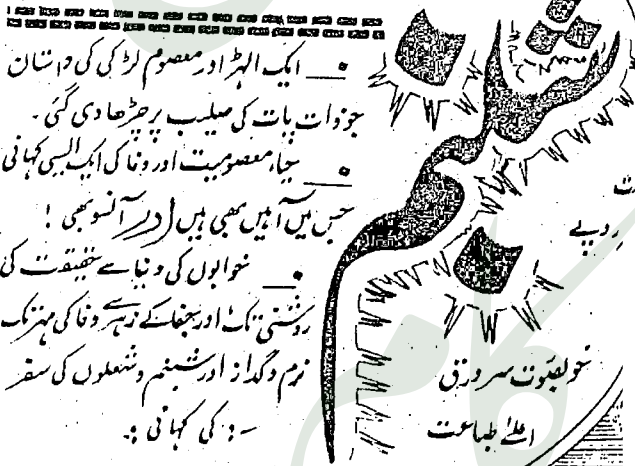 ایک الہڑ اور معصوم لڑکی کی داستان
جو ذات پات کی صلیب پر چڑھا دی گئی۔
حیا، معصومیت اور وفا کی ایک ایسی کہانی
جس میں آہیں بھی ہیں اور آنسو بھی !
خوابوں کی دنیا سے حقیقت کی
روشنی تک اور جفا کے زہر سے وفا کی مہر تک
نرم و گداز اور شبنم و شعلوں کی سفر
کی کہانی
روپے
خوبصورت سرورق
اعلیٰ طباعت